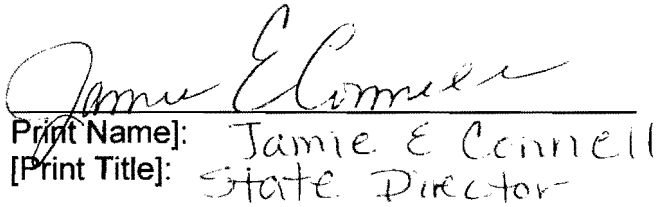 Jamie E Connell
Print Name]: Jamie E Connell
[Print Title]: State Director